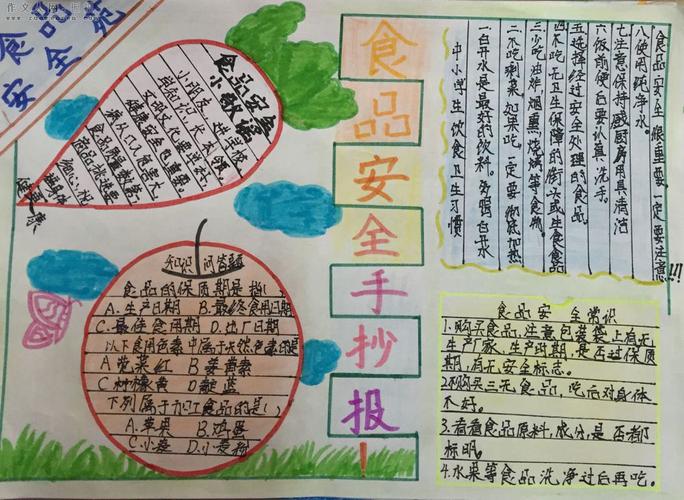 食品
安全
食品安全
小歌谣
食品安全手抄报!
食品安全很重要,一定要注意!!!
八使用纯净水。
七注意保持感厨房用具清洁
六做前便后要认真洗手。
五选择经过安全处理的食品
四不吃无卫生保障的街头或生食食品
三少吃油炸、烟熏、烧烤等食物。
二不吃剩菜,如果吃,一定要彻底加热
一白开水是最好的饮料。多喝白开水
中小学生饮食卫生习惯
知识问答题
食品的保质期是指(
A.生产日期 B.最终食用日期
C.最佳食用期 D.出厂日期
以下食用色素中属于天然色素的是
A苋菜红 B姜黄素
C柠檬黄 D靛蓝
下列属于加工食品的是( )
A.苹果 B.鸡蛋
C.小麦 D.小麦粉
食品安全常识
1.购买食品,注意包装袋上有无
生产厂家、生产时期,是否过保质
期,有无安全标志。
2购买三无食品,吃后对身体
不好。
3.看看食品原料,成分,是否都
标明。
4.水果等食品洗净过后再吃。